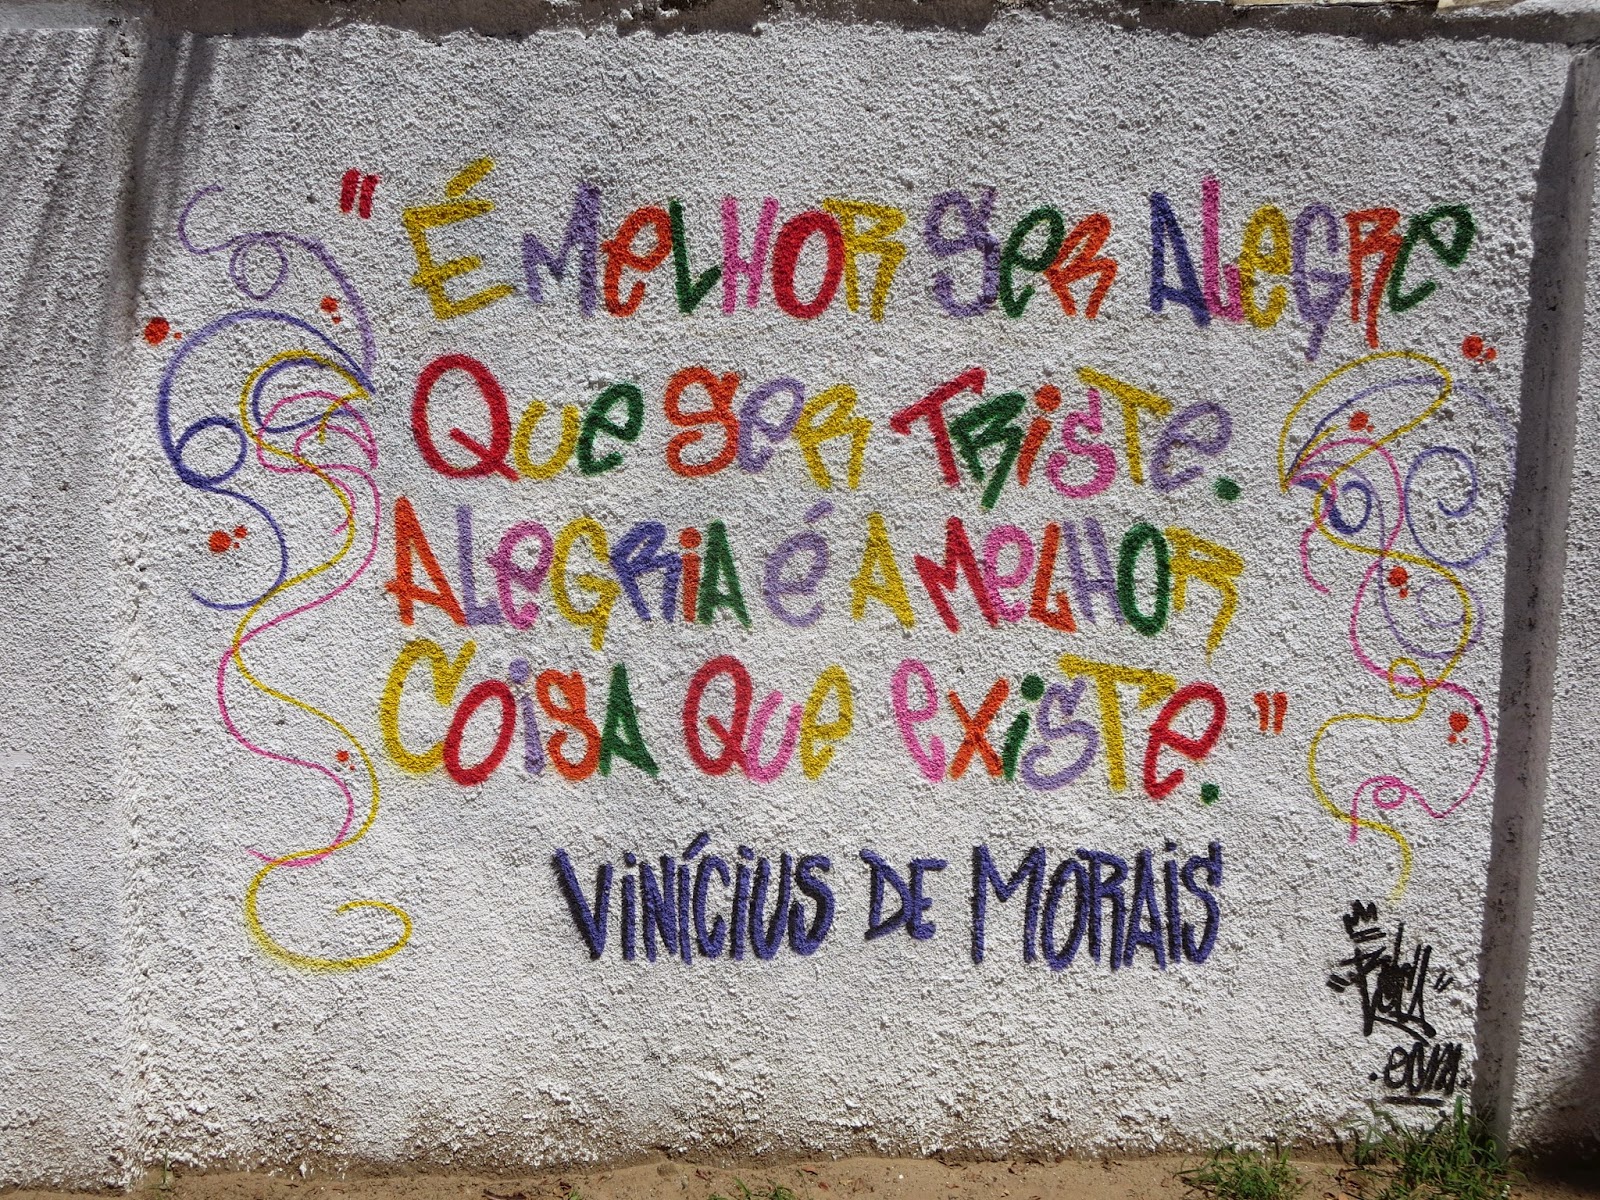 "É MELHOR SER ALEGRE
QUE SER TRISTE.
ALEGRIA É A MELHOR
COISA QUE EXISTE."
VINÍCIUS DE MORAIS